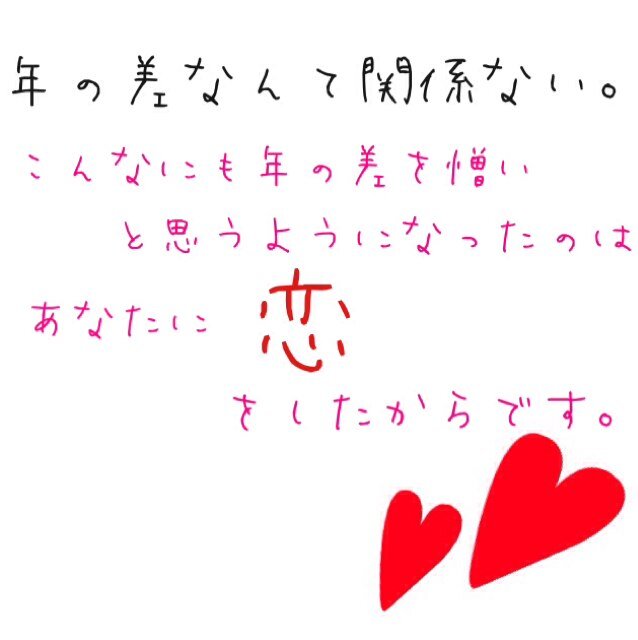 年の差なんて関係ない。
こんなにも年の差を憎い
と思うようになったのは
あなたに 恋
をしたからです。